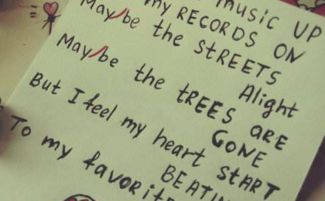 MUSIC UP
MY RECORDS ON
Maybe the STREETS
Alight
Maybe the tREES are
GONE
But I feel my heart START
BEATIN
To my favorite